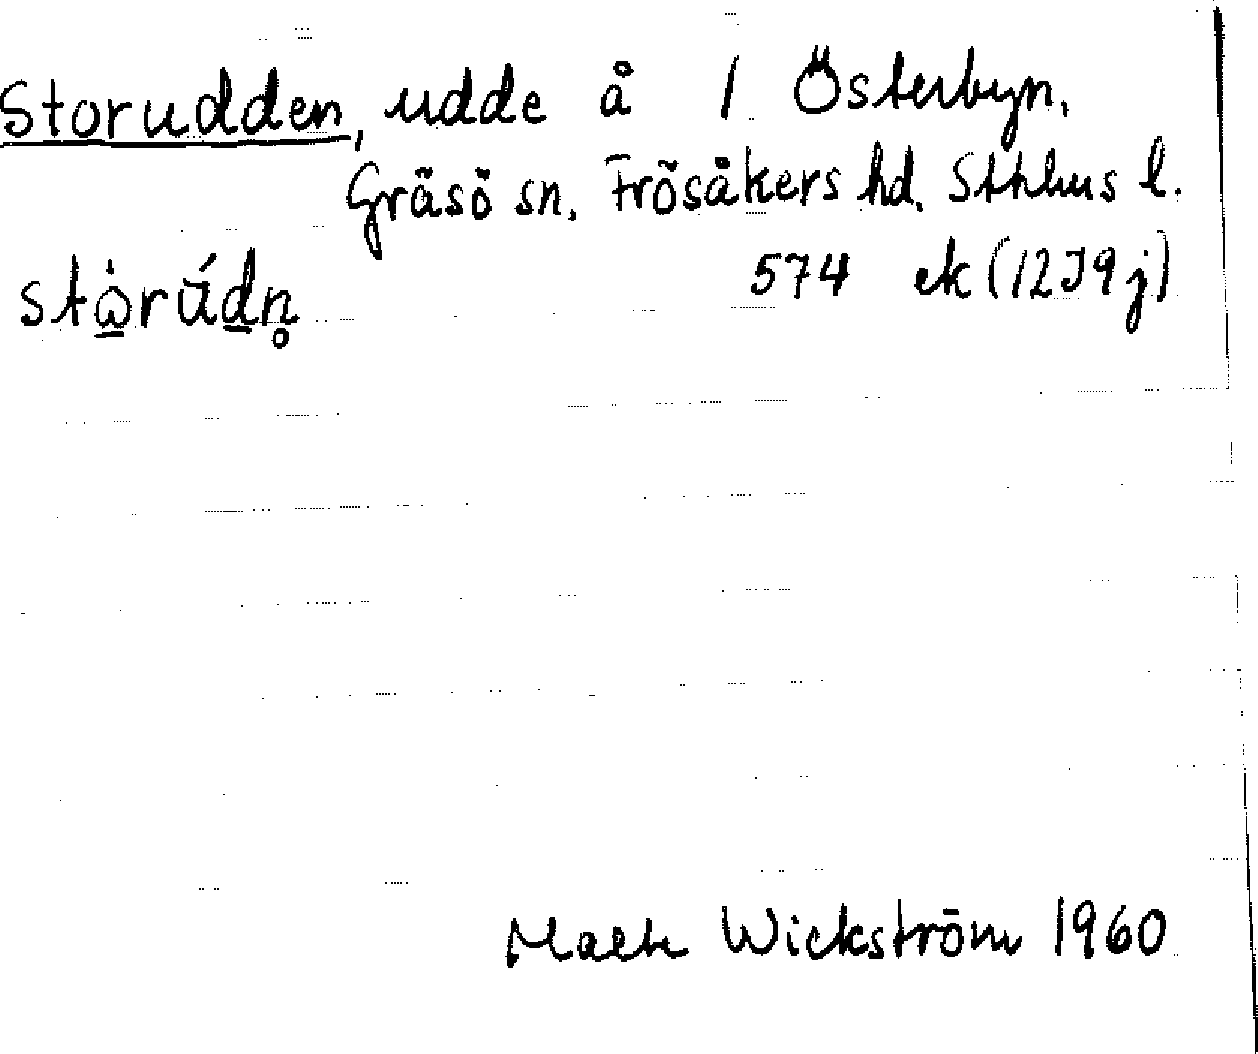 Storudden, udde å 1 Österbyn.
Gräsö sn. Frösåkers hd. Sthlms l.
574 ek (12J9j)
Malte Wickström 1960